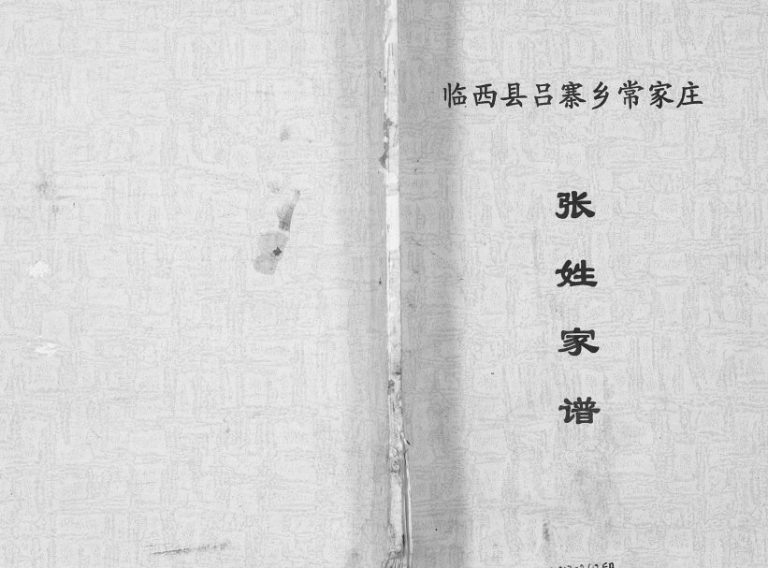 临西县吕寨乡常家庄
张姓家谱